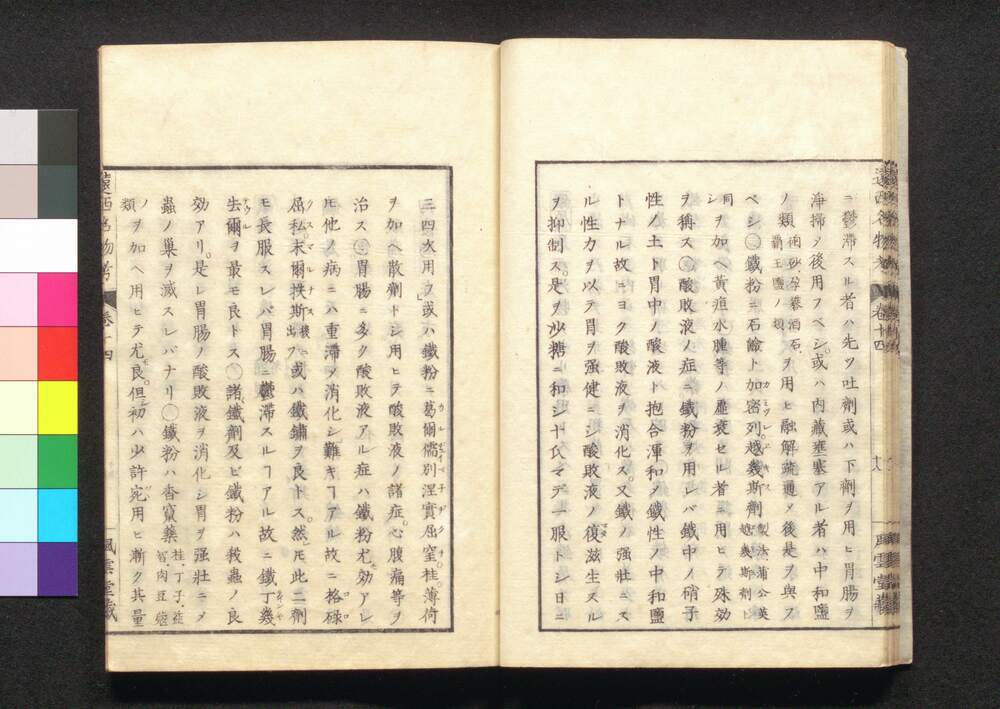 ニ鬱滞スル者ハ先ツ吐劑或ハ下劑ヲ用ヒ胃腸ヲ
淨掃メ後用フベシ。或ハ内臓壅塞アル者ハ中和鹽
ノ類 硇砂、孕礬酒石、覇王鹽ノ類 ヲ用ヒ融解疏通メ後是ヲ與フ
ベシ○鐵粉ニ石鹼ト加密列越幾斯劑 製法蒲公英越幾斯劑ト同シ
ヲ加ヘ黄疸水腫等ノ虚衰セル者ニ用ヒテ殊効
ヲ稱ス○酸敗液ノ症ニ鐵粉ヲ用レバ鐵中ノ硝子
性ノ土ト胃中ノ酸液ト抱合渾和メ鐵性ノ中和鹽
トナル故ニヨク酸敗液ヲ消化ス。又鐵ノ強壯ニス
ル性力ヲ以テ胃ヲ强健ニシ酸敗液ノ復滋生スル
ヲ抑制ス。是ヲ沙糖ニ和シ十氏マデ一服トシ日ニ
遠西名物考 卷十四 風雲堂藏
三四次用フ或ハ鐵粉ニ葛爾儒別涅實屈窒。桂。薄荷
ヲ加ヘ散劑トシ用ヒテ酸敗液ノ諸症。心腹痛等ヲ
治ス○胃腸ニ多ク酸敗液アル症ハ鐵粉尤効アレ
𪜈他ノ病ニハ重滞メ消化シ難キヿアル故ニ格碌
屈私末爾換斯 後出 或ハ鐵鏽ヲ良トス。然𪜈此二劑
モ長服スレバ胃腸ニ鬱滞スルヿアル故ニ鐵丁幾
去爾ヲ最モ良トス○諸鐵劑及ビ鐵粉ハ殺蟲ノ良
効アリ。是レ胃腸ノ酸敗液ヲ消化シ胃ヲ强壯ニメ
蟲ノ巢ヲ滅スレバナリ○鐵粉ハ香竄藥 桂、丁子、
智、肉豆蔲類 ノヲ加ヘ用ヒテ尤良。但初ハ少許宛用ヒ漸ク其量